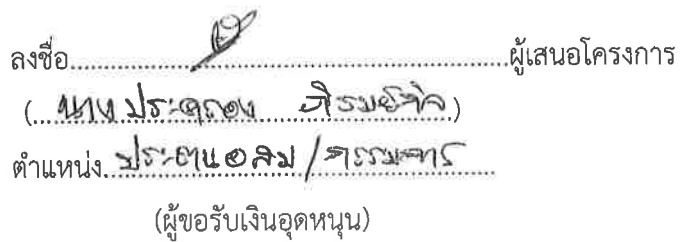 ลงชื่อ................................................ผู้เสนอโครงการ
(...นาง ประคอง.......................)
ตำแหน่ง. ประธาน อสม / กรรมการ
(ผู้ขอรับเงินอุดหนุน)